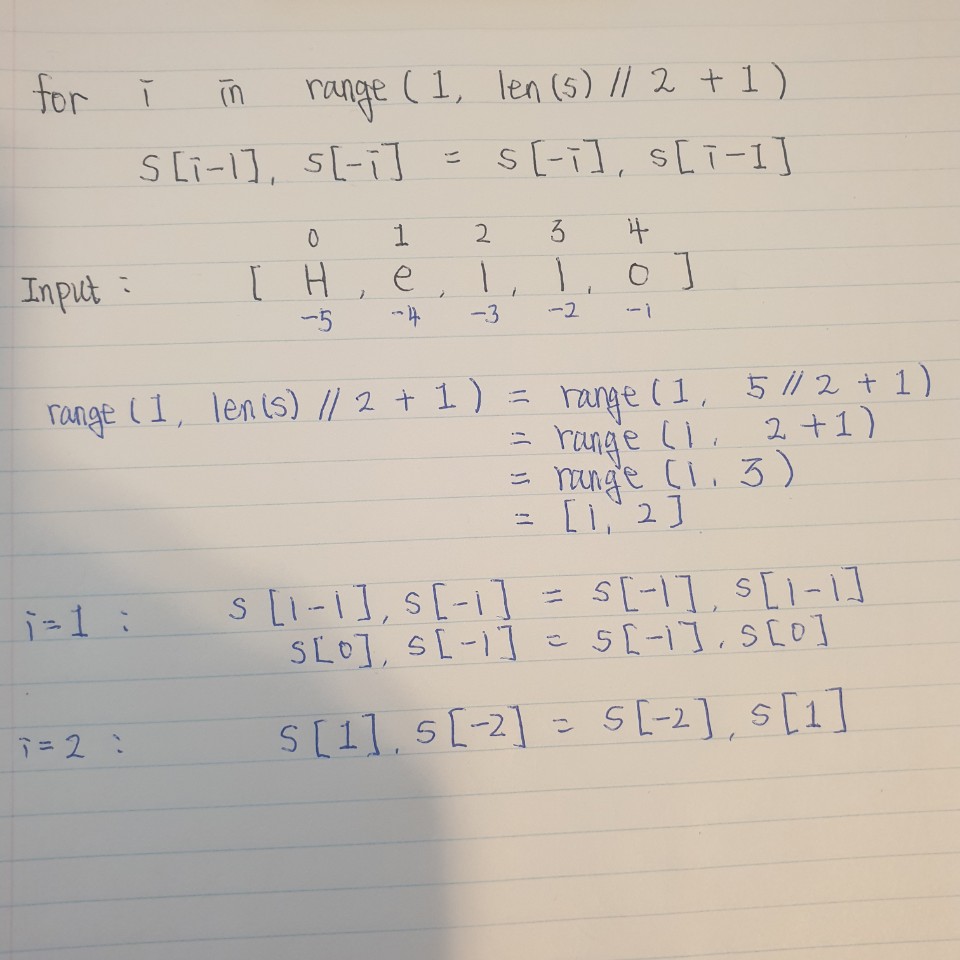 for i in range ( 1, len (s) // 2 + 1 )
s [i-1], s[-i] = s [-i], s[i-1]
0 1 2 3 4
Input : [ H, e, l, l, o ]
-5 -4 -3 -2 -1
range ( 1, len(s) // 2 + 1 ) = range ( 1, 5 // 2 + 1)
= range (1, 2 +1)
= range (1, 3)
= [1, 2]
i=1 : s [1-1], s[-1] = s[-1], s[1-1]
s[0], s[-1] = s[-1], s[0]
i=2 : s[1], s[-2] = s[-2], s[1]